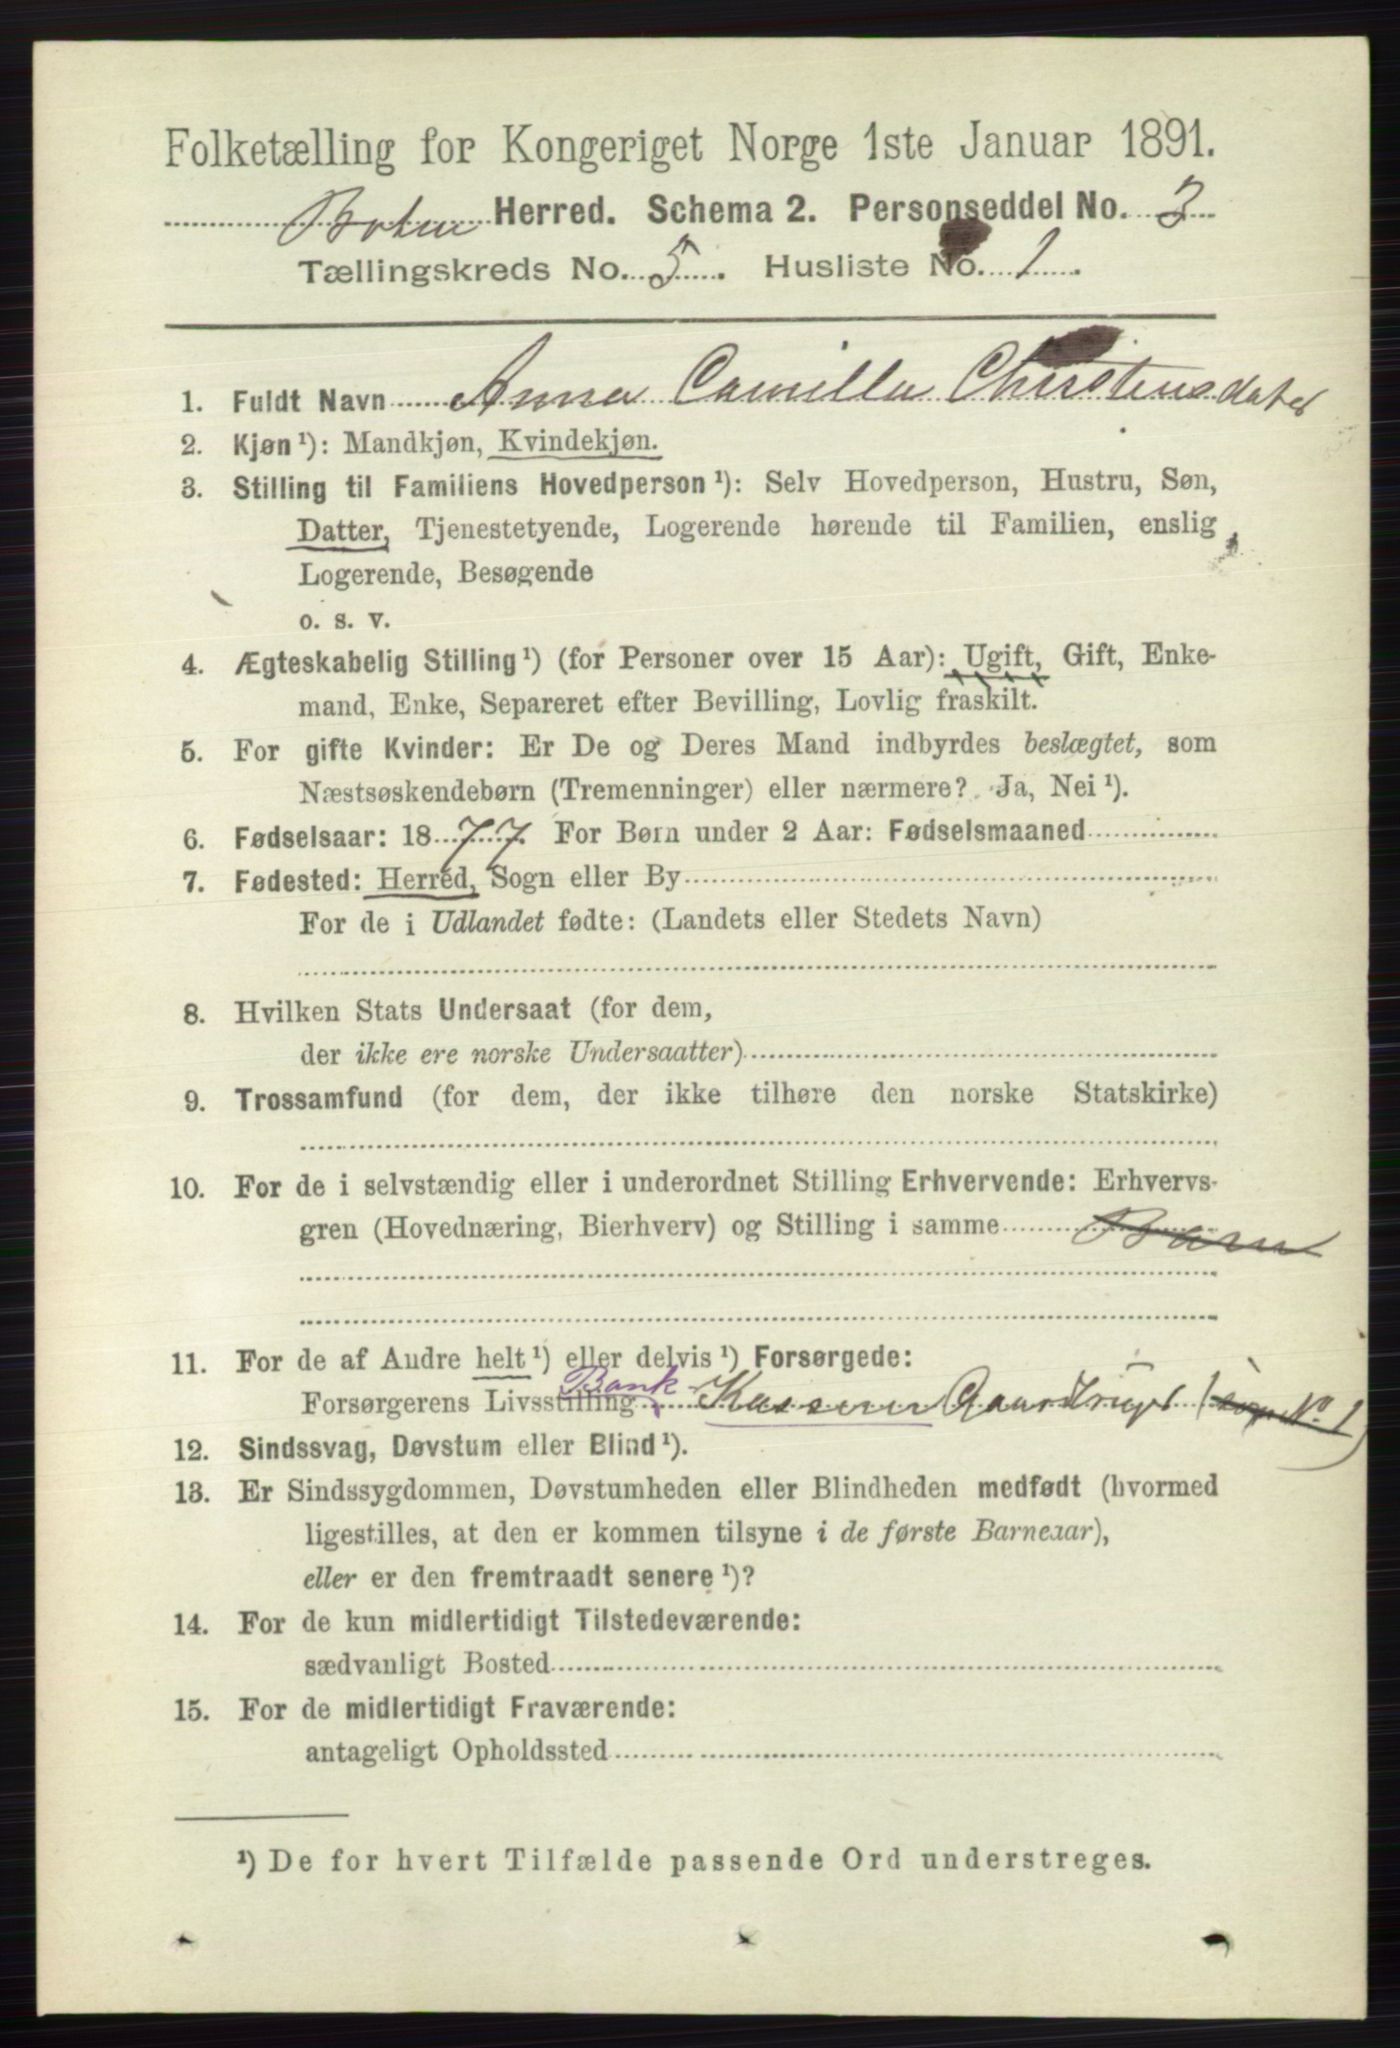 Folketælling for Kongeriget Norge 1ste Januar 1891.
Herred. Schema 2. Personseddel No. 3
Tællingskreds No. 5. Husliste No. 1.
1. Fuldt Navn Anna Camilla Christensdater
2. Kjøn¹): Mandkjøn, Kvindekjøn.
3. Stilling til Familiens Hovedperson¹): Selv Hovedperson, Hustru, Søn,
Datter, Tjenestetyende, Logerende hørende til Familien, enslig
Logerende, Besøgende
o. s. v.
4. Ægteskabelig Stilling¹) (for Personer over 15 Aar): Ugift, Gift, Enke-
mand, Enke, Separeret efter Bevilling, Lovlig fraskilt.
5. For gifte Kvinder: Er De og Deres Mand indbyrdes beslægtet, som
Næstsøskendebørn (Tremenninger) eller nærmere? Ja, Nei¹).
6. Fødselsaar: 1877. For Børn under 2 Aar: Fødselsmaaned
7. Fødested: Herred, Sogn eller By
For de i Udlandet fødte: (Landets eller Stedets Navn)
8. Hvilken Stats Undersaat (for dem,
der ikke ere norske Undersaatter)
9. Trossamfund (for dem, der ikke tilhøre den norske Statskirke)
10. For de i selvstændig eller i underordnet Stilling Erhvervende: Erhvervs-
gren (Hovednæring, Bierhverv) og Stilling i samme Barn
11. For de af Andre helt¹) eller delvis¹) Forsørgede:
Forsørgerens Livsstilling Bank Kasserer No 1)
12. Sindssvag, Døvstum eller Blind¹).
13. Er Sindssygdommen, Døvstumheden eller Blindheden medfødt (hvormed
ligestilles, at den er kommen tilsyne i de første Barneaar),
eller er den fremtraadt senere¹)?
14. For de kun midlertidigt Tilstedeværende:
sædvanligt Bosted
15. For de midlertidigt Fraværende:
antageligt Opholdssted
¹) De for hvert Tilfælde passende Ord understreges.